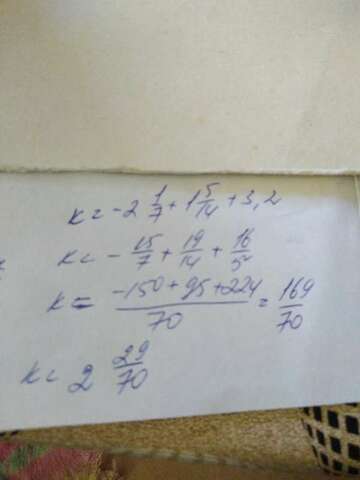 к = -2 1/7 + 1 5/14 + 3,2
к = - 15/7 + 19/14 + 16/5
к = (-150 + 95 + 224)/70 = 169/70
к = 2 29/70